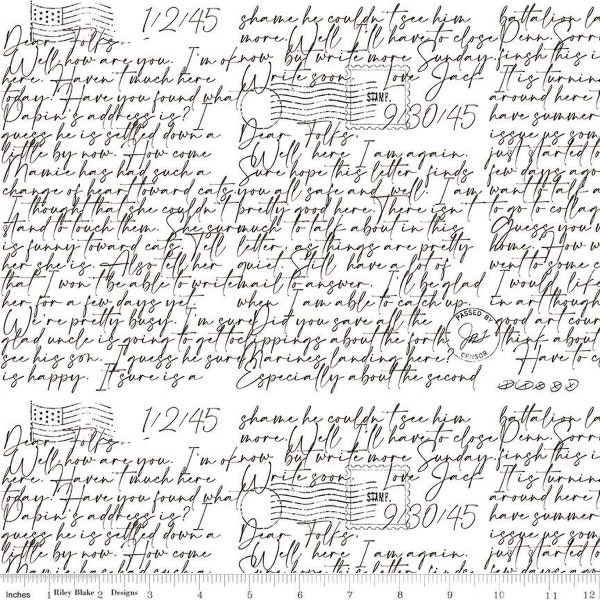 1/2/45
Dear Folks,
Well, how are you. I'm ok
here. Haven't much here
today. Have you found wha
Papin's address is? I
guess he is settled down a
little by now. How come
Mamie has had such a
change of heart toward cats.
I thought that she couldn't
stand to touch them. She sur
is funny toward cats. Tell
her she is. Also tell her
that I won't be able to write
her for a few days yet.
We're pretty busy. I'm sur
glad uncle is going to get to
see his son. I guess he sure
is happy. It sure is a
shame he couldn't see him
more. Well I'll have to close
now but write more Sunday.
Write soon. Love Jack
STAMP.
9/30/45
Dear Folks,
Well, here I am again.
Sure hope this letter finds
you all safe and well. I am
pretty good here. There isn't
much to talk about in this
letter, as things are pretty
quiet. Still have a lot of
mail to answer. I'll be glad
when I am able to catch up.
Did you save all the
clippings about the forth
Marines landing here?
Especially about the second
PASSED BY
CENSOR
battalion la
Penn. Sorr
finsh this
It is turnin
around here t
have summer
issue us som
just started to
few days ago
want to talk a
to go to collag
Guess you w
home. How w
went to some c
I would life
in art though
good art cour
think about
Have to c
1/2/45
Dear Folks,
Well, how are you. I'm ok
here. Haven't much here
today. Have you found wha
Papin's address is? I
guess he is settled down a
little by now. How come
Mamie has had such a
shame he couldn't see him
more. Well I'll have to close
now but write more Sunday.
Write soon. Love Jack
STAMP.
9/30/45
Dear Folks,
Well, here I am again.
Sure hope this letter finds
battalion la
Penn. Sorr
finsh this
It is turnin
around here t
have summer
issue us som
just started to
few days ago
Inches 1 Riley Blake 2 Designs 3 4 5 6 7 8 9 10 11 12